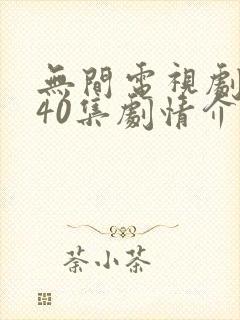 無間電視劇
40集劇情介
荼小荼